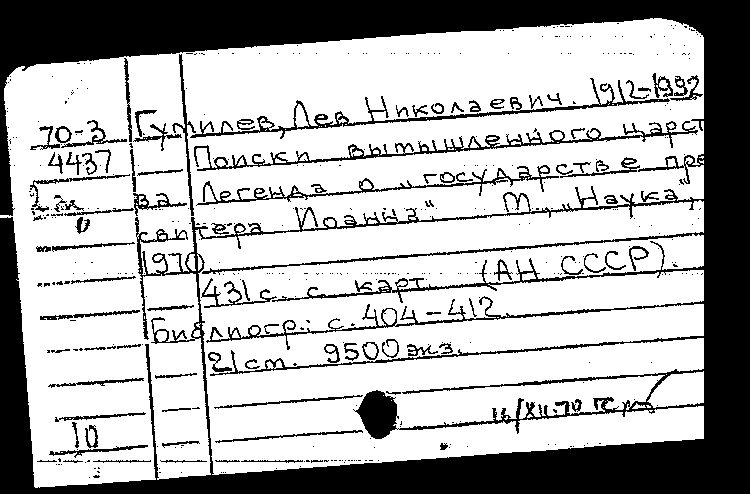 70-3 Гумилев, Лев Николаевич. 1912-1992
4437 Поиски вымышленного царст
2 эк ва Легенда о „государстве пре
свитера Иоанна". М., „Наука",
1970
431 с. с карт. (АН СССР).
Библиогр.: с. 404-412.
21 см. 9500 экз.
16/XII-70
10